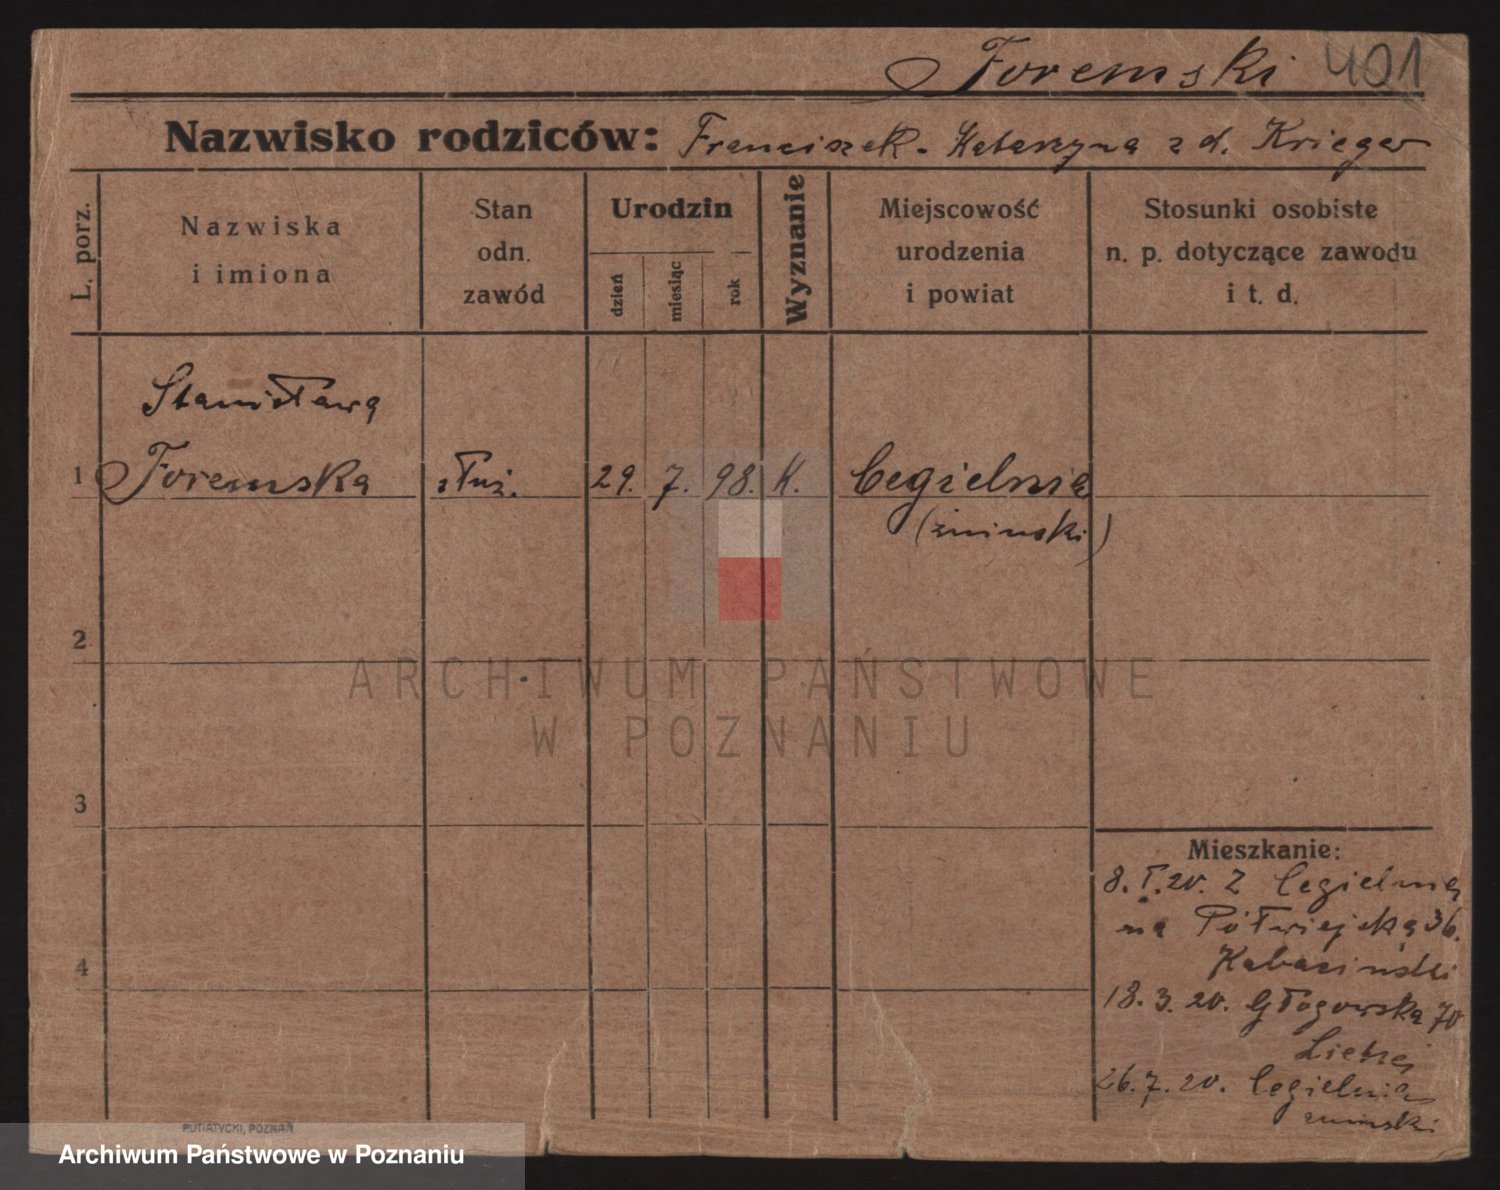 Foremski 401
Nazwisko rodziców: Franciszek - Katarzyna z d. Krieger
L. porz.
Nazwiska
i imiona
Stan
odn.
zawód
Urodzin
dzień
miesiąc
rok
Wyznanie
Miejscowość
urodzenia
i powiat
Stosunki osobiste
n. p. dotyczące zawodu
i t. d.
Stanisława
1 Foremska służ. 29. 7. 98. K. Cegielnia
(żninski)
2
3
4
Mieszkanie:
8. I. 20. Z Cegielnia
na Półwiejska 36.
Kabaciński
18. 3. 20. Głogowska 70
26. 7. 20. Cegielnia
żninski
PUTIATYCKI, POZNAŃ
ARCHIWUM PAŃSTWOWE
W POZNANIU
Archiwum Państwowe w Poznaniu